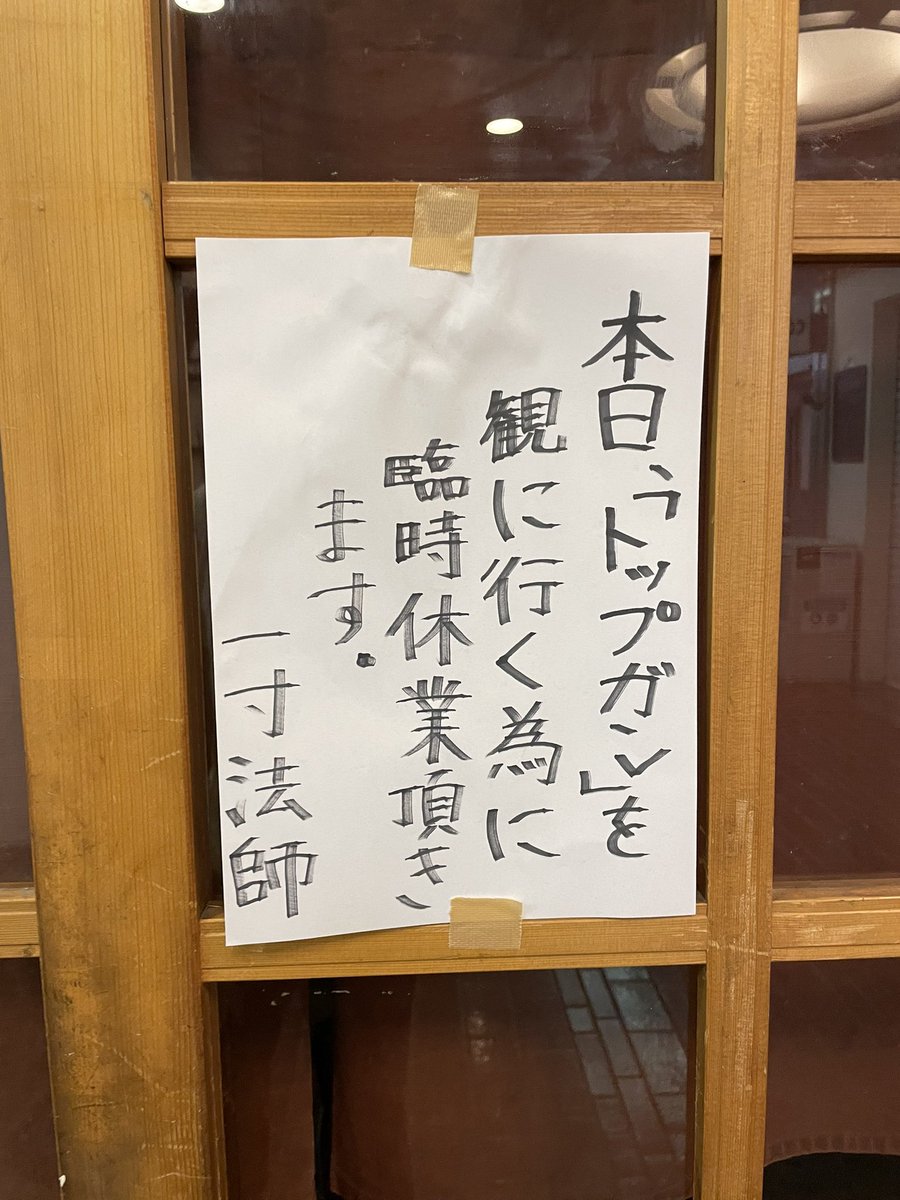 本日、「トップガン」を
観に行く為に
臨時休業頂き
ます.
一寸法師